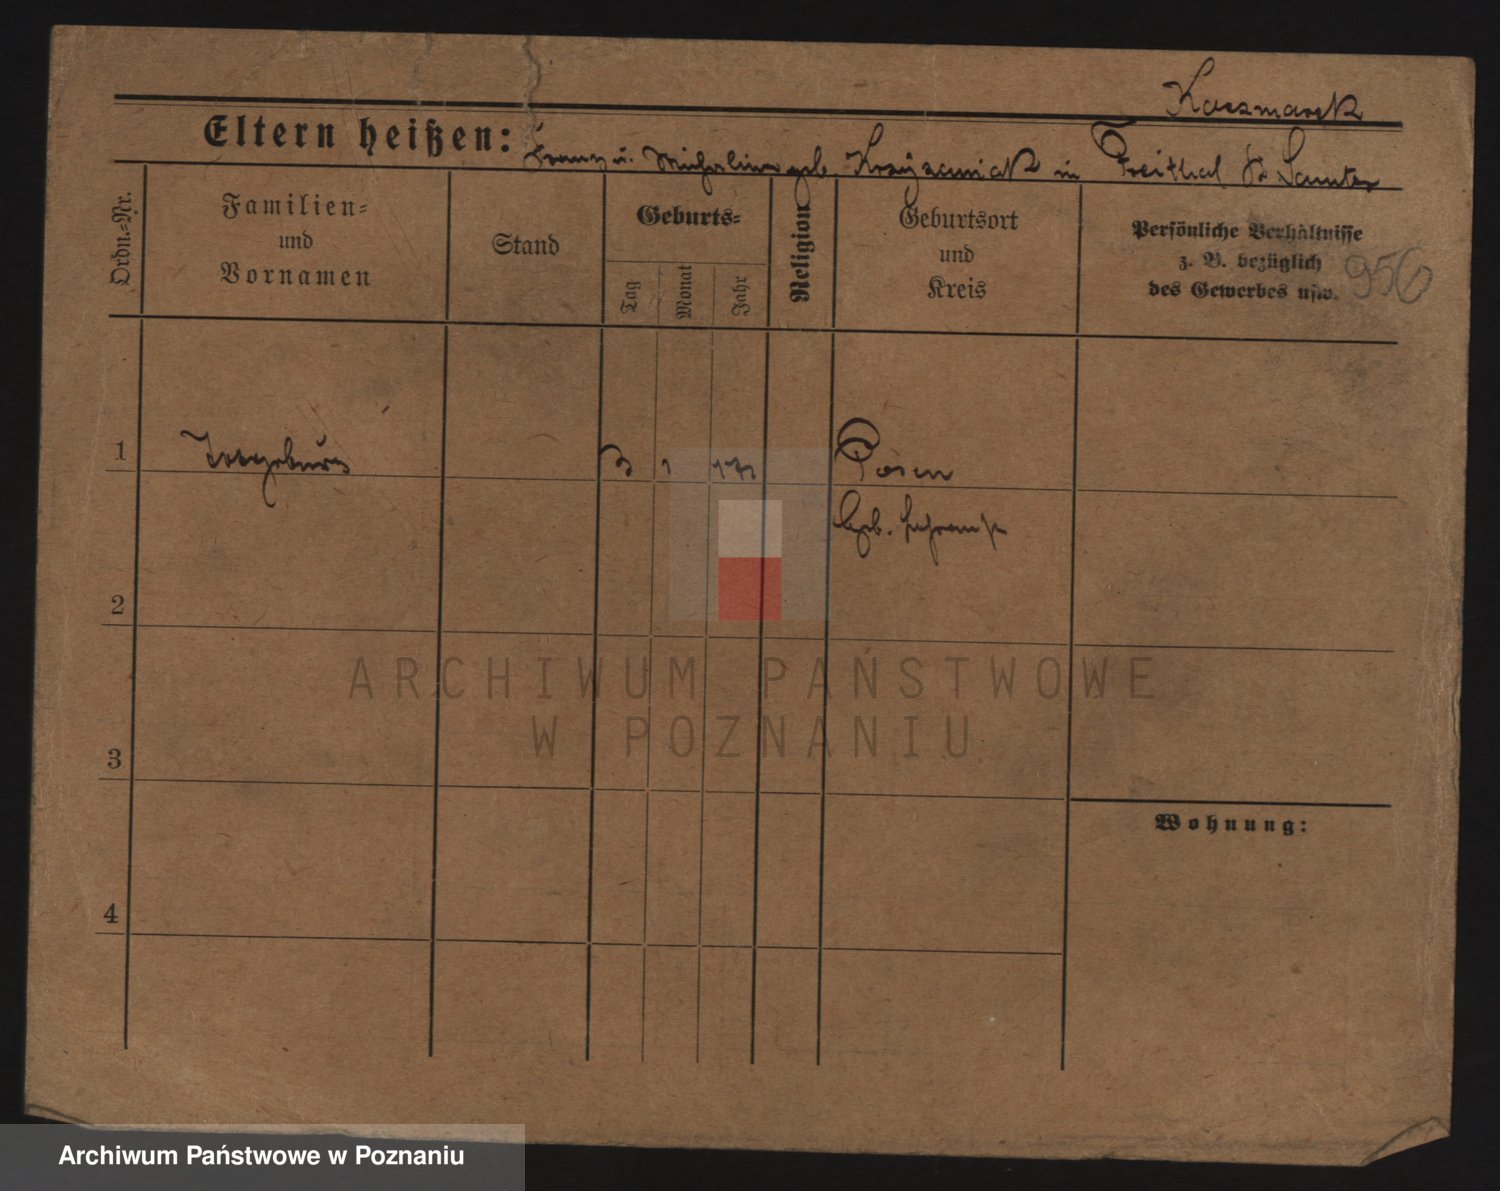 Kaczmarek
Eltern heißen: Franz u. Michalina geb. Krzyzaniak in Freithal Kr Samter
Ordn.=Nr.
Familien=
und
Vornamen
Stand
Geburts=
Tag
Monat
Jahr
Religion
Geburtsort
und
Kreis
Persönliche Verhältnisse
z. B. bezüglich
des Gewerbes usw.
956
1
3 1
Posen
2
3
4
Wohnung:
ARCHIWUM PAŃSTWOWE
W POZNANIU
Archiwum Państwowe w Poznaniu